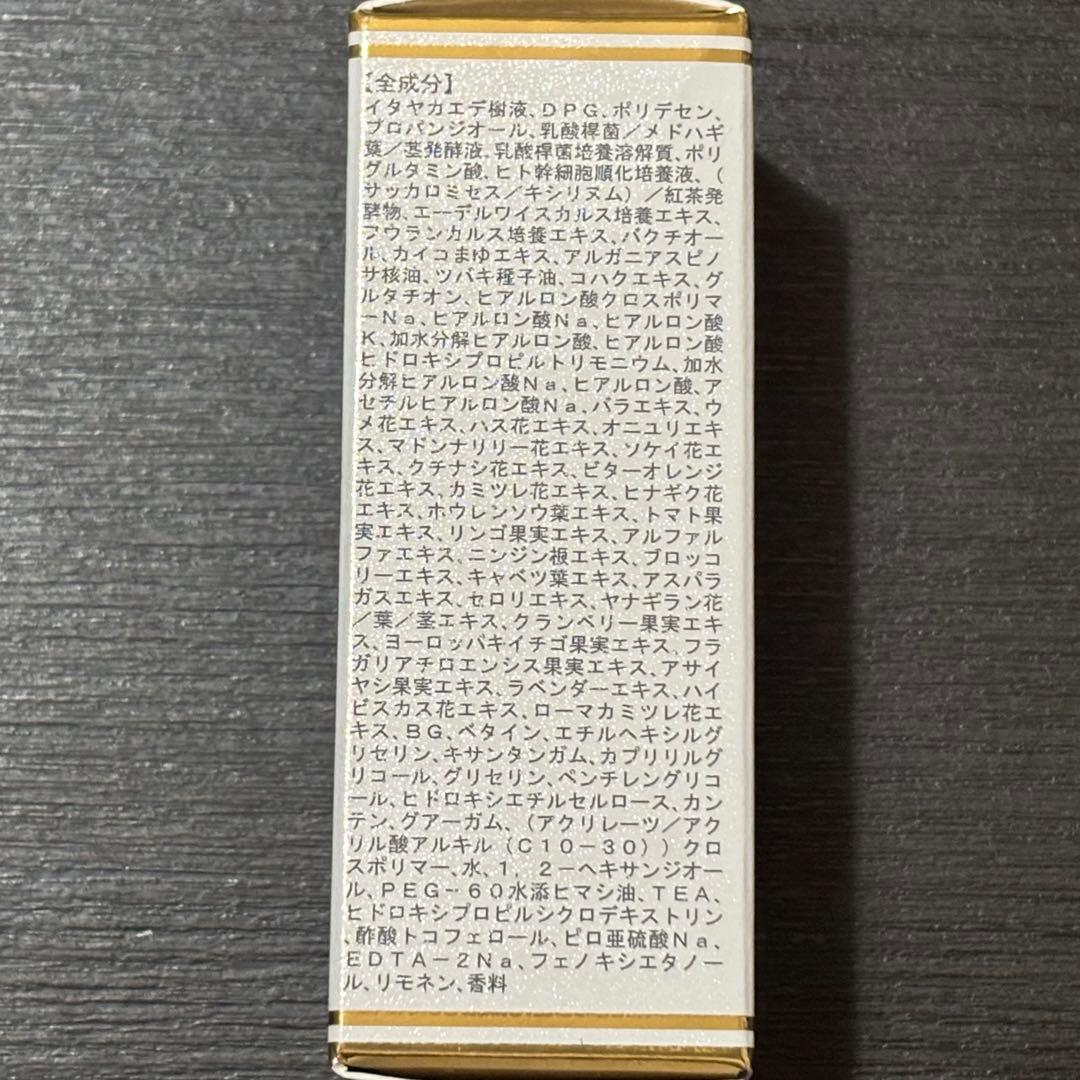 【全成分】
イタヤカエデ樹液、DPG、ポリデセン、
プロパンジオール、乳酸桿菌／メドハギ
葉／茎発酵液、乳酸桿菌培養溶解質、ポリ
グルタミン酸、ヒト幹細胞順化培養液、（
サッカロミセス／キシリヌム）／紅茶発
酵物、エーデルワイスカルス培養エキス、
アウランカルス培養エキス、バクチオー
ル、カイコまゆエキス、アルガニアスピノ
サ核油、ツバキ種子油、コハクエキス、グ
ルタチオン、ヒアルロン酸クロスポリマ
ーNa、ヒアルロン酸Na、ヒアルロン酸
K、加水分解ヒアルロン酸、ヒアルロン酸
ヒドロキシプロピルトリモニウム、加水
分解ヒアルロン酸Na、ヒアルロン酸、ア
セチルヒアルロン酸Na、バラエキス、ウ
メ花エキス、ハス花エキス、オニユリエキ
ス、マドンナリリー花エキス、ソケイ花エ
キス、クチナシ花エキス、ビターオレンジ
花エキス、カミツレ花エキス、ヒナギク花
エキス、ホウレンソウ葉エキス、トマト果
実エキス、リンゴ果実エキス、アルファル
ファエキス、ニンジン根エキス、ブロッコ
リーエキス、キャベツ葉エキス、アスパラ
ガスエキス、セロリエキス、ヤナギラン花
／葉／茎エキス、クランベリー果実エキ
ス、ヨーロッパキイチゴ果実エキス、フラ
ガリアチロエンシス果実エキス、アサイ
ヤシ果実エキス、ラベンダーエキス、ハイ
ビスカス花エキス、ローマカミツレ花エ
キス、BG、ベタイン、エチルヘキシルグ
リセリン、キサンタンガム、カプリリルグ
リコール、グリセリン、ペンチレングリコ
ール、ヒドロキシエチルセルロース、カン
テン、グアーガム、（アクリレーツ／アク
リル酸アルキル（C10－30））クロ
スポリマー、水、1，2－ヘキサンジオー
ル、PEG－60水添ヒマシ油、TEA、
ヒドロキシプロピルシクロデキストリン
、酢酸トコフェロール、ピロ亜硫酸Na、
EDTA－2Na、フェノキシエタノー
ル、リモネン、香料